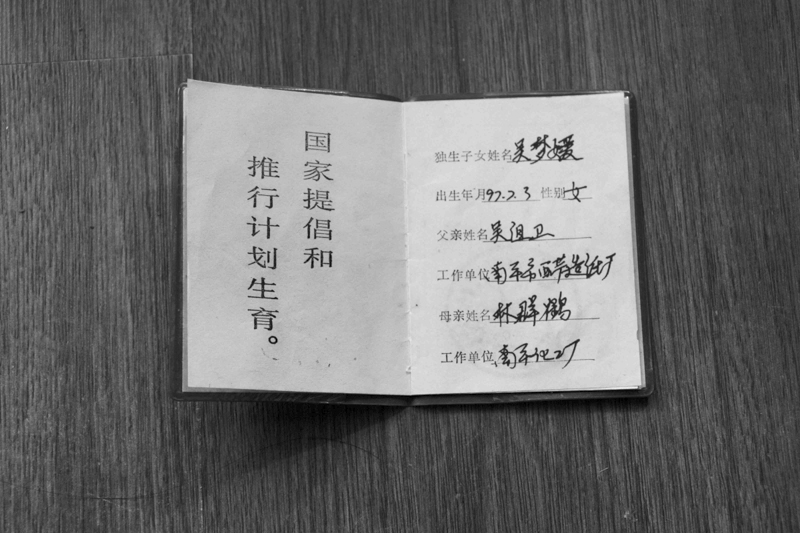 国家提倡和
推行计划生育。
独生子女姓名吴梦媛
出生年月97.2.3 性别女
父亲姓名吴祖卫
工作单位南平市西芹造纸厂
母亲姓名林群鹤
工作单位南平化工厂